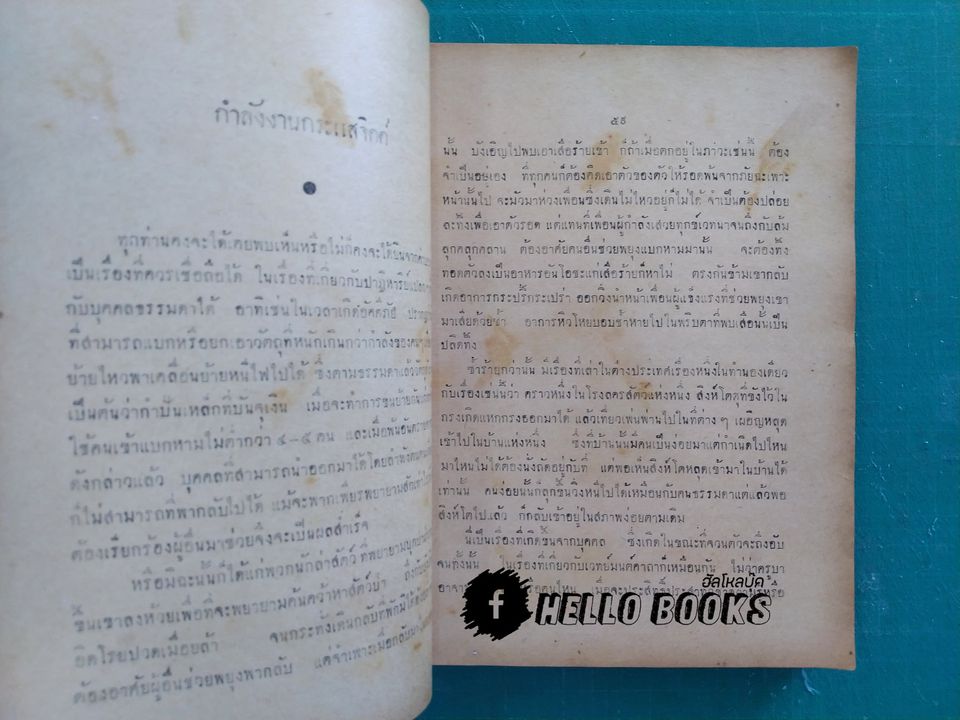 กำลังงานกระแสจิตต์
ทุกท่านคงจะได้เคยพบเห็นหรือไม่ก็คงจะได้ยินจาก
เป็นเรื่องที่ควรเชื่อถือได้ ในเรื่องที่เกี่ยวกับปาฏิหาริย์
กับบุคคลธรรมดาได้ อาทิเช่นในเวลาเกิดอัคคีภัย
ที่สามารถแบกหรือยกเอาวัตถุที่หนักเกินกว่ากำลังของ
ย้ายไหวพาเคลื่อนย้ายหนีไฟไปได้ ซึ่งตามธรรมดาแล้ว
เป็นต้นว่ากำปั่นเหล็กที่บันจุเงิน เมื่อจะทำการขนย้าย
ใช้คนเข้าแบกหามไม่ต่ำกว่า ๔-๕ คน และเมื่อพ้นอันตราย
ดังกล่าวแล้ว บุคคลที่สามารถนำออกมาได้โดยลำพัง
ก็ไม่สามารถที่พากลับไปได้ แม้จะพากเพียรพยายามสักเท่า
ต้องเรียกร้องผู้อื่นมาช่วยจึงจะเป็นผลสำเร็จ
หรือมิฉะนั้นก็ได้แก่พวกนักล่าสัตว์ ที่พยายาม
ขึ้นเขาลงห้วยเพื่อที่จะพยายามค้นคว้าหาสัตว์ป่า
อิดโรยปวดเมื่อยล้า จนกระทั่งเดินกลับที่พักมิได้
ต้องอาศัยผู้อื่นช่วยพยุงพากลับ แต่จำเพาะเมื่อกลับมา
๕๙
นั้น บังเอิญไปพบเอาเสือร้ายเข้า ก็ถ้าเมื่อตกอยู่ในภาวะเช่นนั้น ต้อง
จำเป็นอยู่เอง ที่ทุกคนก็ต้องคิดเอาตัวของตัวให้รอดพ้นจากภัยฉะเพาะ
หน้านั้นไป จะมัวมาห่วงเพื่อนซึ่งเดินไม่ไหวอยู่ก็ไม่ได้ จำเป็นต้องปล่อย
ละทิ้งเพื่อเอาตัวรอด แต่แทนที่เพื่อนผู้กำลังเสวยทุกข์เวทนาจนถึงกับล้ม
ลุกคลุกคลาน ต้องอาศัยคนอื่นช่วยพยุงแบกหามมานั้น จะต้องทิ้ง
ทอดตัวลงเป็นอาหารอันโอชะแก่เสือร้ายก็หาไม่ ตรงกันข้ามเขากลับ
เกิดอาการกระปรี้กระเปร่า ออกวิ่งนำหน้าเพื่อนผู้แข็งแรงที่ช่วยพยุงเขา
มาเสียด้วยซ้ำ อาการหิวโหยบอบช้ำหายไปในพริบตาที่พบเสือนั้นเป็น
ปลิดทิ้ง
ซ้ำร้ายกว่านั้น มีเรื่องที่เล่าในต่างประเทศเรื่องหนึ่งในทำนองเดียว
กับเรื่องเช่นนี้ว่า คราวหนึ่งในโรงละครสัตว์แห่งหนึ่ง สิงห์โตดุที่ขังไว้ใน
กรงเกิดแหกกรงออกมาได้ แล้วเที่ยวเพ่นพ่านไปในที่ต่าง ๆ เผอิญหลุด
เข้าไปในบ้านแห่งหนึ่ง ซึ่งที่บ้านนั้นมีคนเป็นง่อยมาแต่กำเนิดไปไหน
มาไหนไม่ได้ต้องนั่งถัดอยู่กับที่ แต่พอเห็นสิงห์โตหลุดเข้ามาในบ้านได้
เท่านั้น คนง่อยนั้นก็ลุกขึ้นวิ่งหนีไปได้เหมือนกับคนธรรมดาแต่แล้วพอ
สิงห์โตไปแล้ว ก็กลับเข้าอยู่ในสภาพง่อยตามเดิม
นี่เป็นเรื่องที่เกิดขึ้นจากบุคคล ซึ่งเกิดในขณะที่จวนตัวจะถึงอับ
จนทั้งนั้น ในเรื่องที่เกี่ยวกับเวทย์มนต์คาถาก็เหมือนกัน ไม่ว่าครูบา
อาจา คนไหน เมื่อจะประสิทธิ์ประสาท หรือ
ฮัลโหลบุ๊ค
f HELLO BOOKS